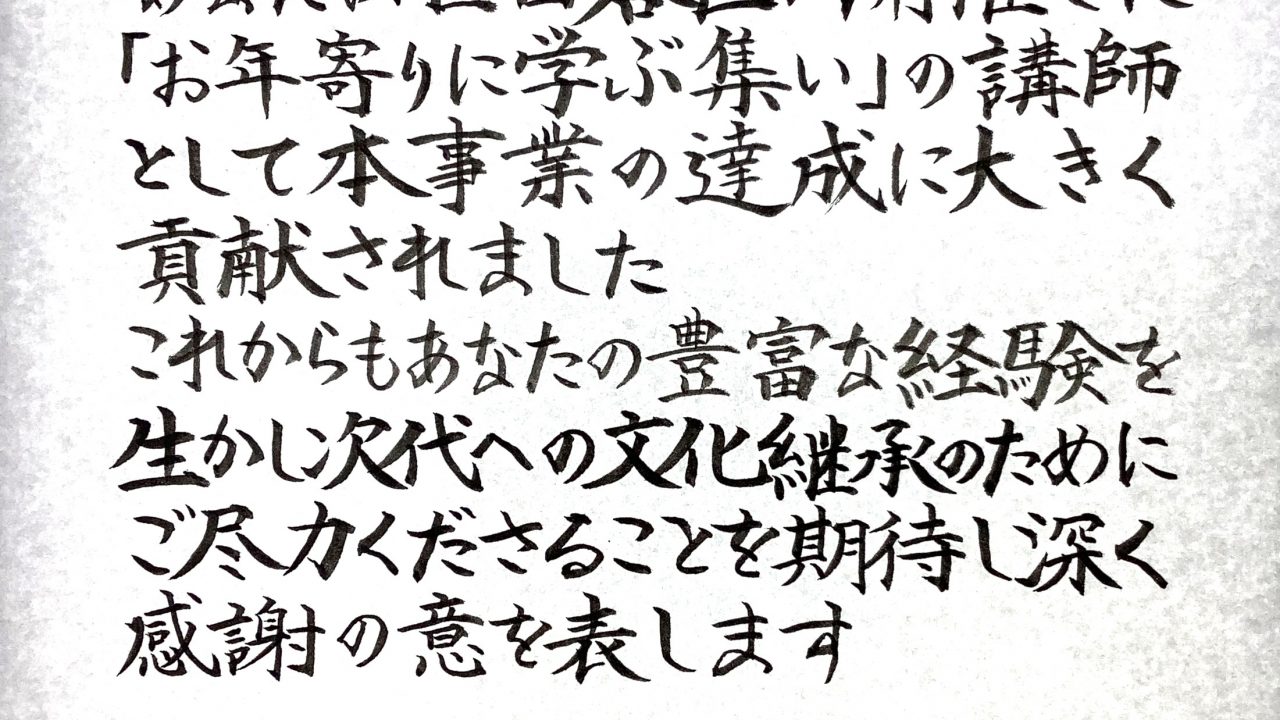 「お年寄りに学ぶ集い」の講師
として本事業の達成に大きく
貢献されました
これからもあなたの豊富な経験を
生かし次代への文化継承のために
ご尽力くださることを期待し深く
感謝の意を表します